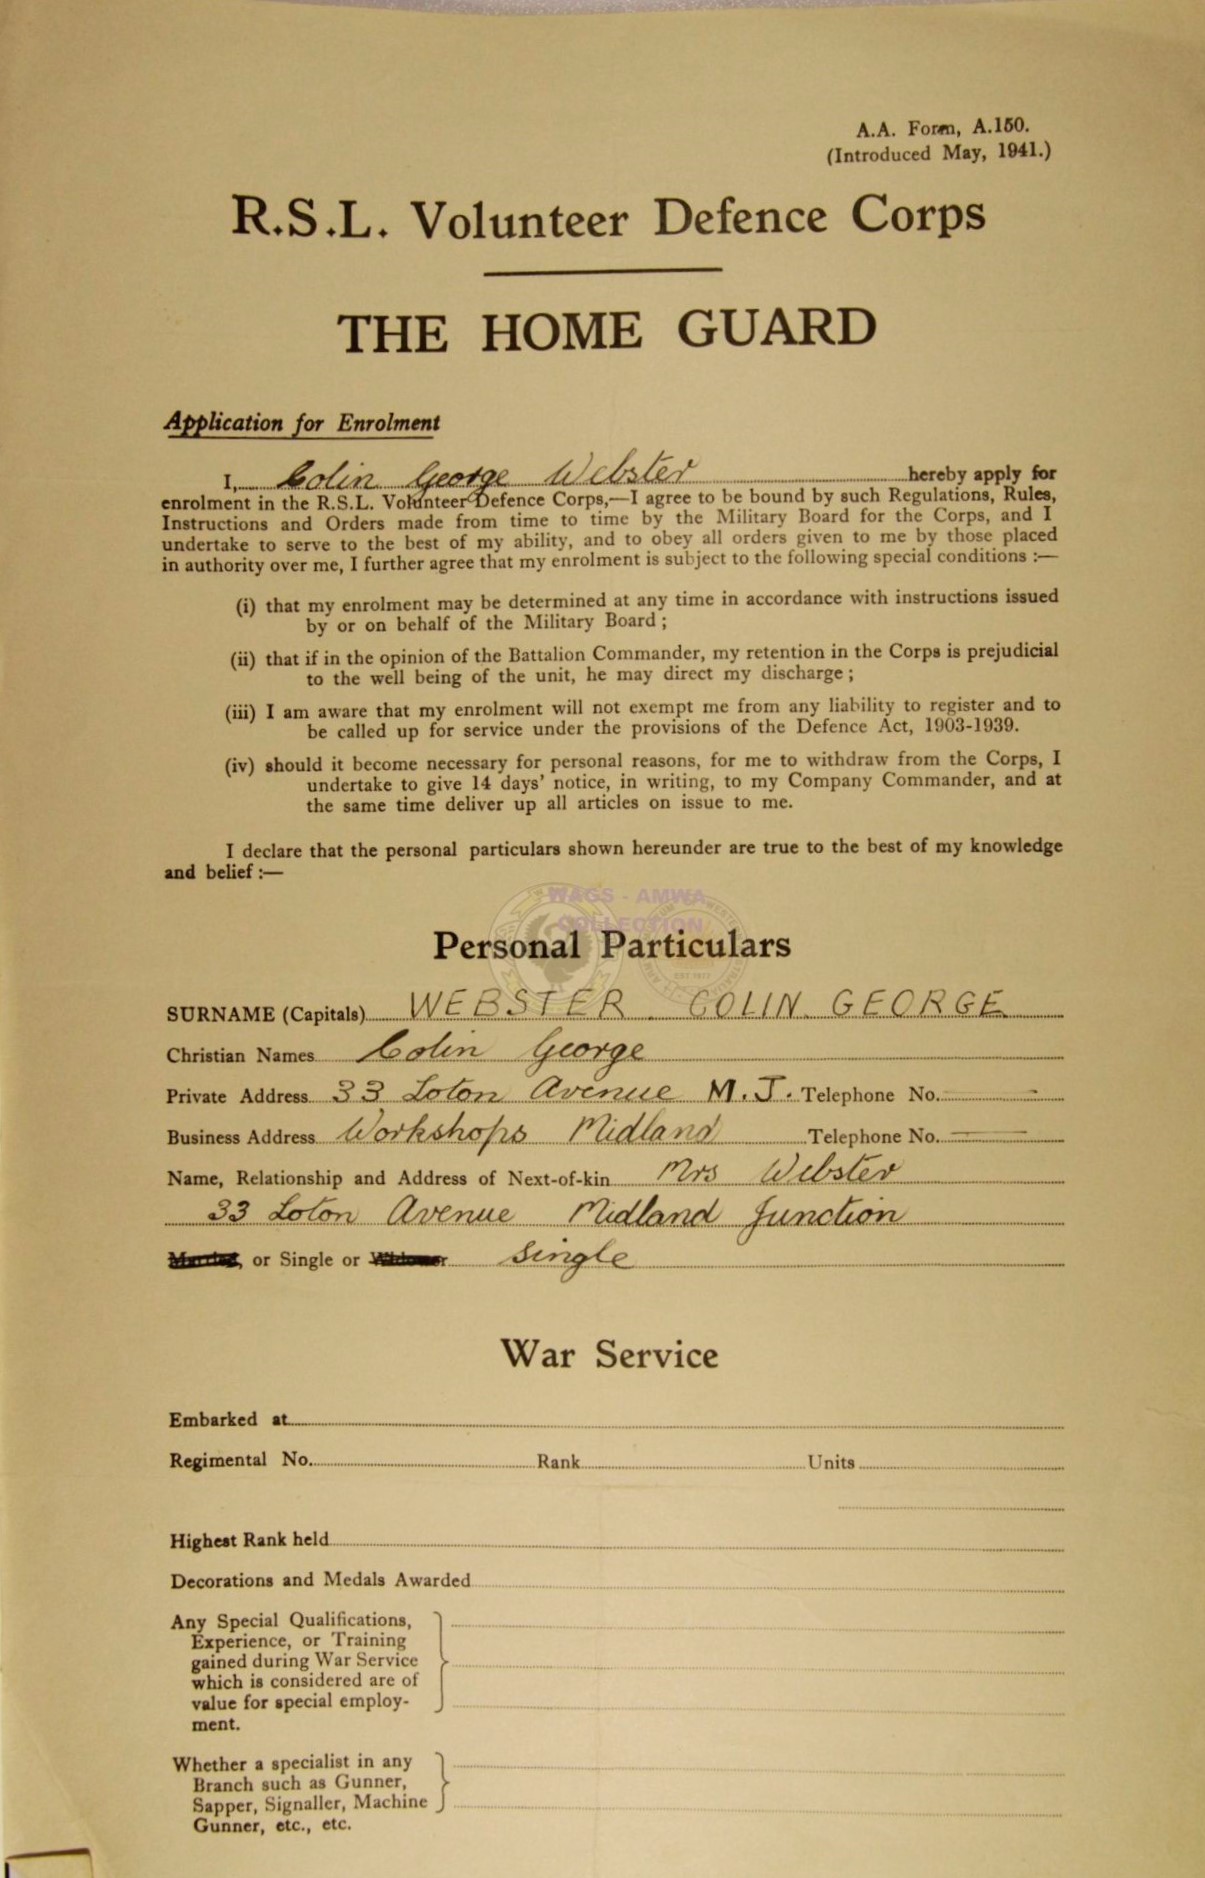 A.A. Form, A.150.
(Introduced May, 1941.)
R.S.L. Volunteer Defence Corps
THE HOME GUARD
Application for Enrolment
I, Colin George Webster hereby apply for
enrolment in the R.S.L. Volunteer Defence Corps,—I agree to be bound by such Regulations, Rules,
Instructions and Orders made from time to time by the Military Board for the Corps, and I
undertake to serve to the best of my ability, and to obey all orders given to me by those placed
in authority over me, I further agree that my enrolment is subject to the following special conditions :—
(i) that my enrolment may be determined at any time in accordance with instructions issued
by or on behalf of the Military Board ;
(ii) that if in the opinion of the Battalion Commander, my retention in the Corps is prejudicial
to the well being of the unit, he may direct my discharge ;
(iii) I am aware that my enrolment will not exempt me from any liability to register and to
be called up for service under the provisions of the Defence Act, 1903-1939.
(iv) should it become necessary for personal reasons, for me to withdraw from the Corps, I
undertake to give 14 days' notice, in writing, to my Company Commander, and at
the same time deliver up all articles on issue to me.
I declare that the personal particulars shown hereunder are true to the best of my knowledge
and belief :—
WAGS - AMWA
COLLECTION
Personal Particulars
SURNAME (Capitals) WEBSTER COLIN GEORGE
Christian Names Colin George
Private Address 33 Loton Avenue M.J. Telephone No. —
Business Address Workshops Midland Telephone No. —
Name, Relationship and Address of Next-of-kin Mrs Webster
33 Loton Avenue Midland Junction
Married, or Single or Widower single
War Service
Embarked at
Regimental No. Rank Units
Highest Rank held
Decorations and Medals Awarded
Any Special Qualifications,
Experience, or Training
gained during War Service
which is considered are of
value for special employ-
ment.
Whether a specialist in any
Branch such as Gunner,
Sapper, Signaller, Machine
Gunner, etc., etc.